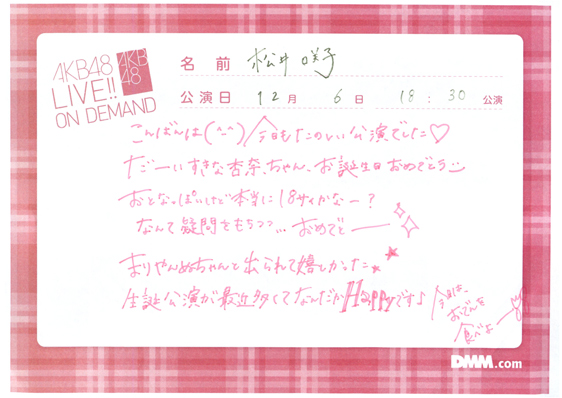 AKB48
LIVE!!
ON DEMAND
AKB
48
名前 松井咲子
公演日 12月 6日 18:30 公演
こんばんは(^-^)/今日もたのしい公演でした♡
だーいすきな杏奈ちゃん、お誕生日おめでとう
おとなっぽいけど本当に18サイかなー?
なんて疑問をもちつつ…おめでとー
まりやんぬちゃんと出られて嬉しかった★
生誕公演が最近多くてなんだかHappyです♪
今日は、
おでんを
食べよー
DMM.com